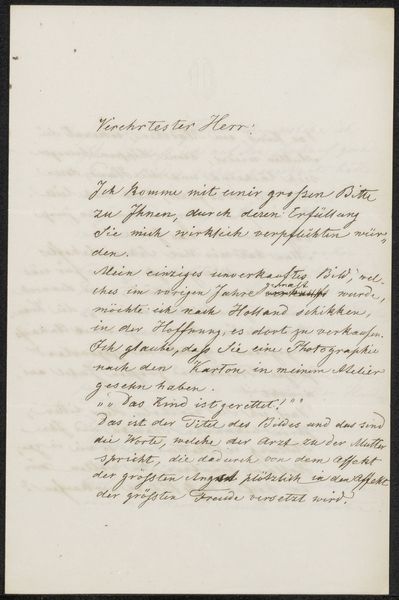 Verehrtester Herr!
Ich komme mit einer großen Bitte
zu Ihnen, durch deren Erfüllung
Sie mich wirklich verpflichten wür„
den.
Mein einziges unverkauftes Bild, wel„
ches im vorigen Jahre gemalt wurde,
möchte ich nach Holland schikken,
in der Hoffnung, es dort zu verkaufen.
Ich glaube, daß Sie eine Photographie
nach den Karton in meinem Atelier
gesehn haben.
„„Das Kind ist gerettet!““
Das ist der Titel des Bildes und das sind
die Worte, welche der Arzt zu der Mutter
spricht, die dadurch von dem Affekt
der größten Angst plötzlich in den Affekt
der größten Freude versetzt wird.